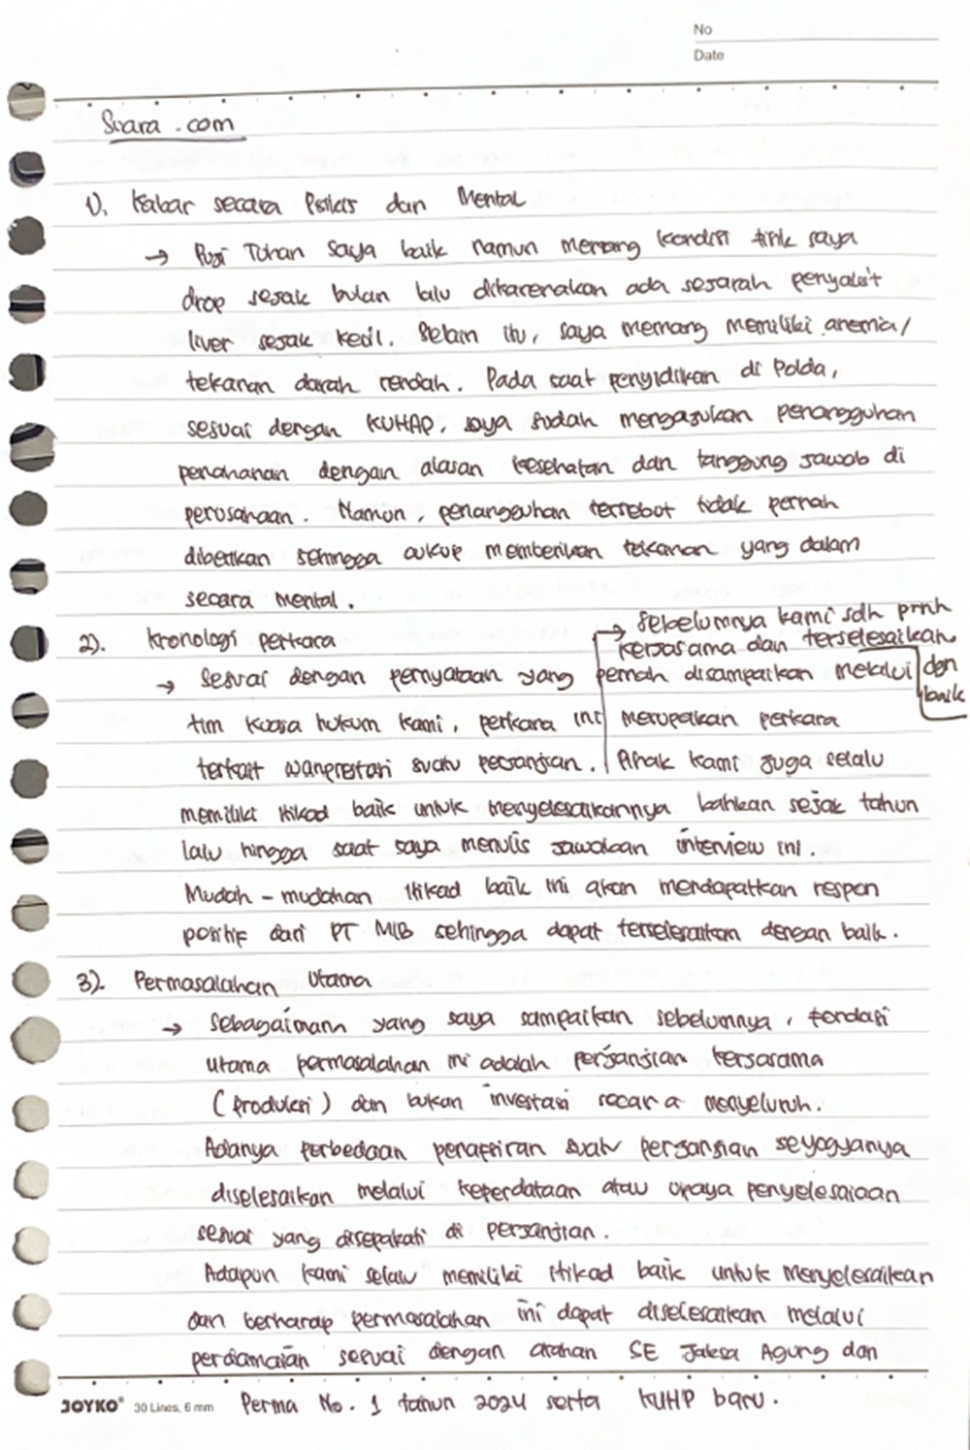 No
Date
Suara.com
1). Kabar secara Psikis dan Mental
→ Puji Tuhan saya baik namun memang kondisi fisik saya
drop sejak bulan lalu dikarenakan ada sejarah penyakit
liver sejak kecil. Selain itu, saya memang memiliki anemia/
tekanan darah rendah. Pada saat penyidikan di Polda,
sesuai dengan KUHAP, saya sudah mengajukan penangguhan
penahanan dengan alasan kesehatan dan tanggung jawab di
perusahaan. Namun, penangguhan tersebut tidak pernah
diberikan sehingga cukup memberikan tekanan yang dalam
secara mental.
→ Sebelumnya kami sdh prnh
kerjasama dan terselesaikan
dgn
baik
2). Kronologi perkara
→ Sesuai dengan pernyataan yang pernah disampaikan melalui
tim kuasa hukum kami, perkara ini merupakan perkara
terkait wanprestasi suatu perjanjian. Pihak kami juga selalu
memiliki itikad baik untuk menyelesaikannya bahkan sejak tahun
lalu hingga saat saya menulis jawaban interview ini.
Mudah-mudahan itikad baik ini akan mendapatkan respon
positif dari PT MIB sehingga dapat terselesaikan dengan baik.
3). Permasalahan Utama
→ Sebagaimana yang saya sampaikan sebelumnya, fondasi
utama permasalahan ini adalah perjanjian kerjasama
(produksi) dan bukan investasi secara menyeluruh.
Adanya perbedaan penafsiran suatu perjanjian seyogyanya
diselesaikan melalui keperdataan atau upaya penyelesaiaan
sesuai yang disepakati di perjanjian.
Adapun kami selalu memiliki itikad baik untuk menyelesaikan
dan berharap permasalahan ini dapat diselesaikan melalui
perdamaian sesuai dengan arahan SE Jaksa Agung dan
Perma No. 1 tahun 2024 serta KUHP baru.
JOYKO® 30 Lines, 6 mm